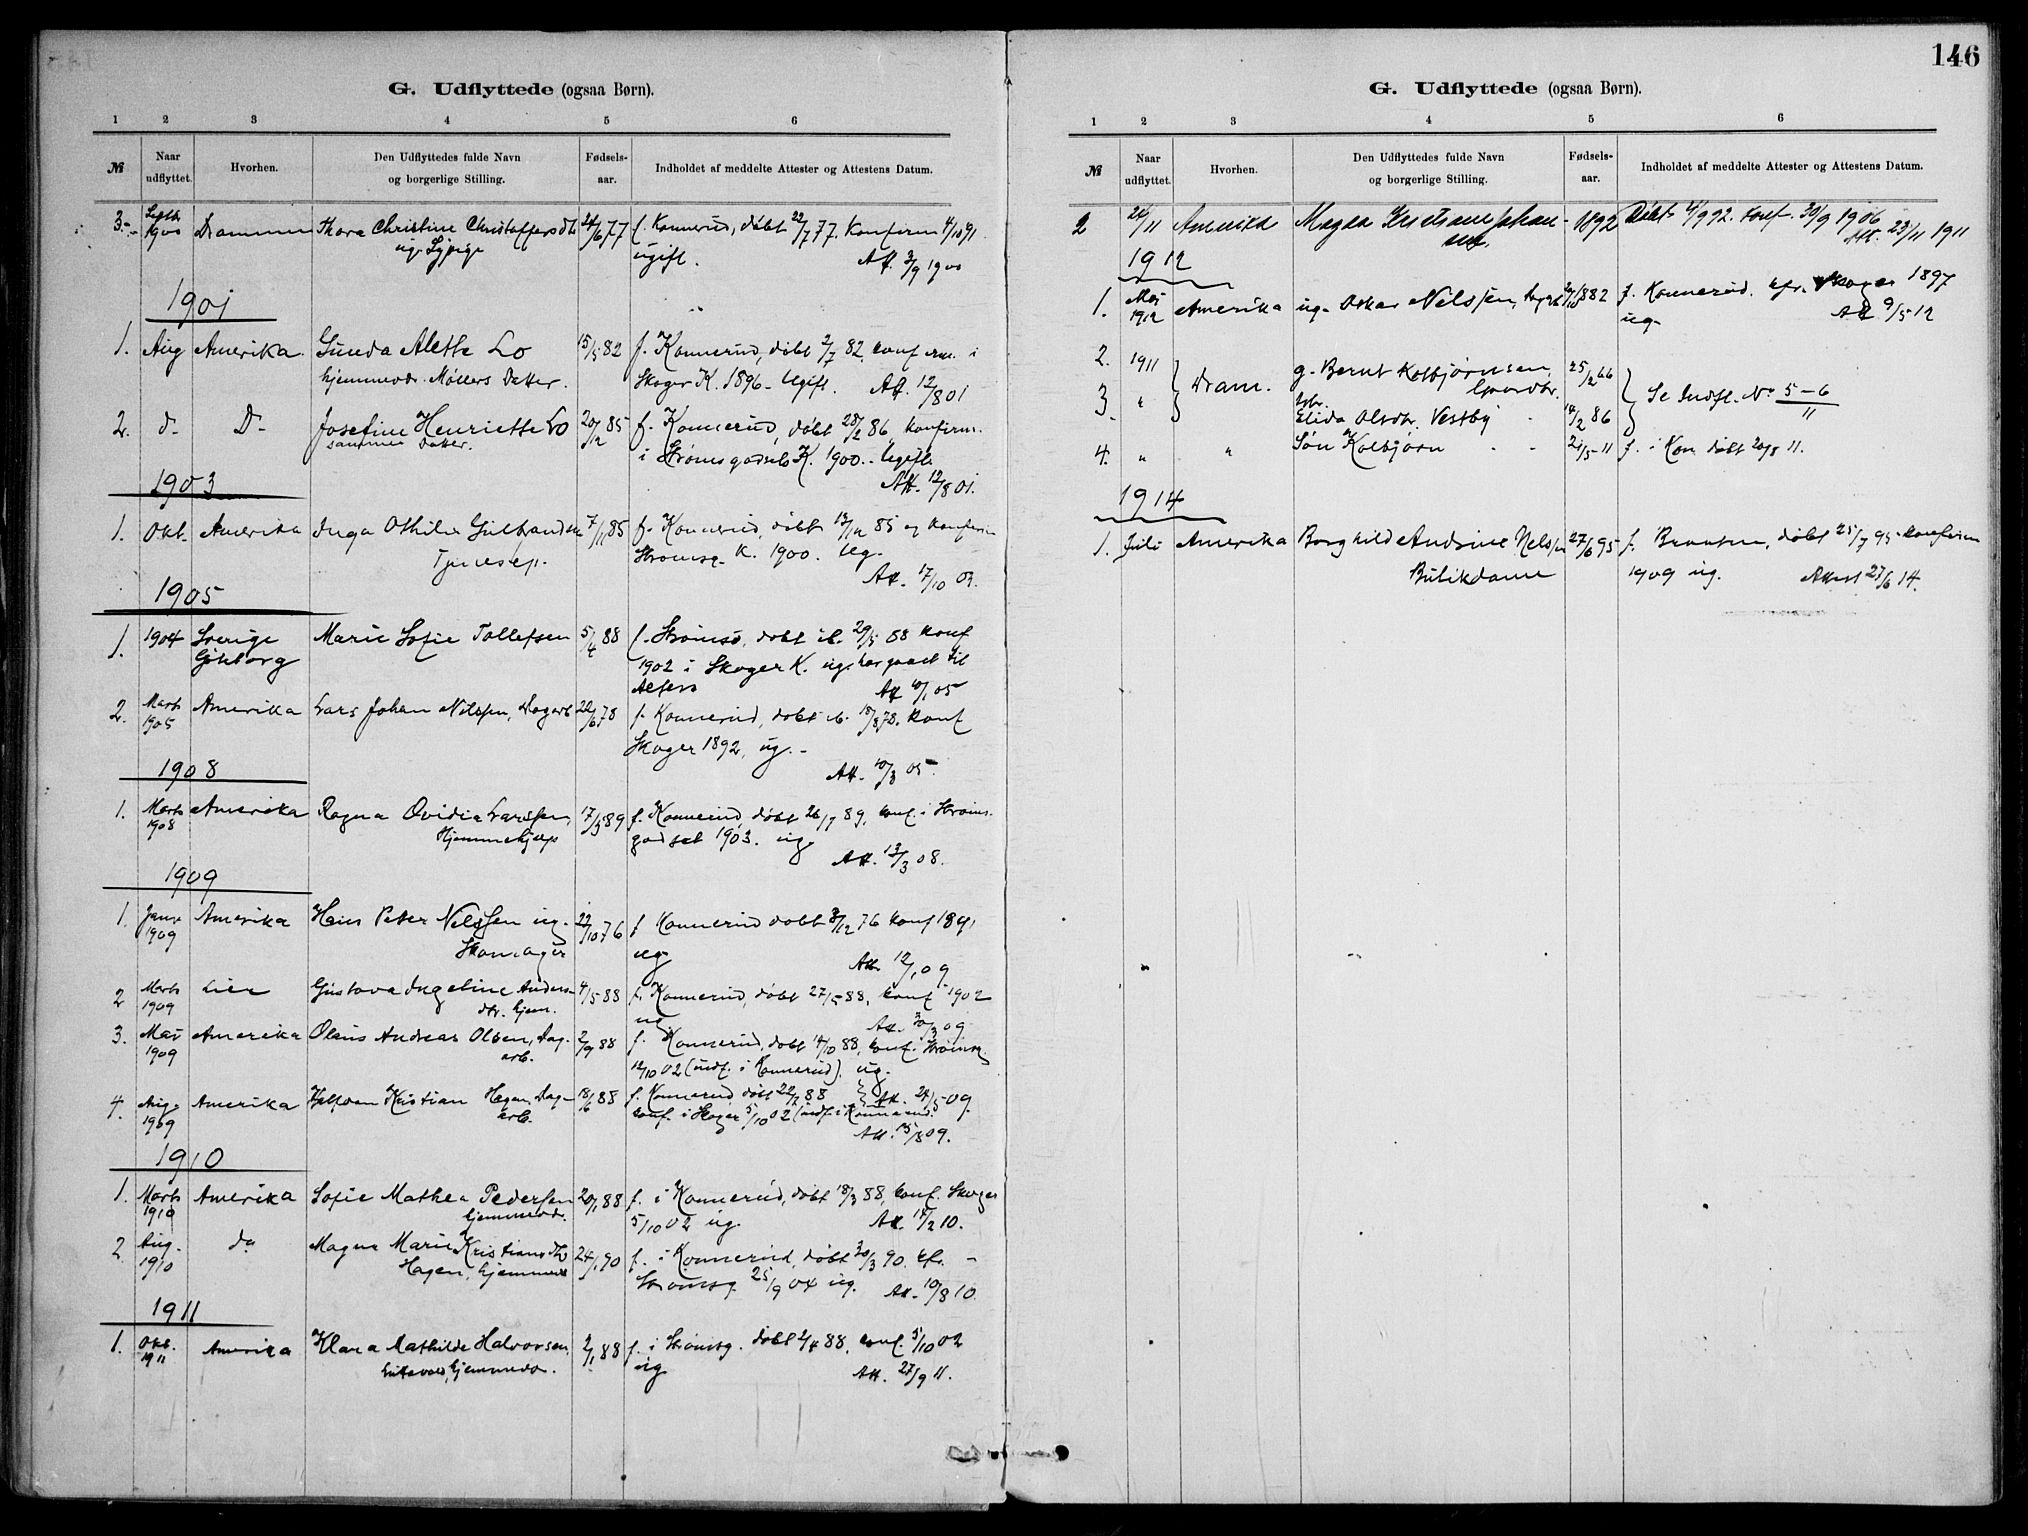 G. Udflyttede (ogsaa Børn).
1 2 3 4 5 6
№ Naar udflyttet. Hvorhen. Den Udflyttedes fulde Navn og borgerlige Stilling. Fødsels-aar. Indholdet af meddelte Attester og Attestens Datum.
3 Septb. 1900 Drammen Thora Christine Christoffersdtr 24/6 77 f. Konnerud, døbt 22/7 77. Konfirm 4/10 91
ug. Sypige ugift. Att. 3/9 1900
1901
1. Aug Amerika. Gunda Alette Lo 15/5 82 f. Konnerud, døbt 2/7 82, konfirm. i
hjemmevr. Møllers Datter. Skoger K. 1896 - Ugift. Att. 12/8 01
2. d- D- Josefine Henriette Lo 20/12 85 f. Konnerud, døbt 28/2 86, konfirm.
samme Datter. i Strømsgodsets K. 1900 - Ugift.
Att. 12/8 01.
1903
1. Okt. Amerika Inga Othilie Gulbrandsen 7/11 85 f. Konnerud, døbt 13/12 85 og konfirm
Tjenesep. Strømsg. K. 1900. Ug.
Att. 17/10 03.
1905
1. 1904 Sverige Marie Sofie Tollefsen 5/4 88 f. Strømsø, døbt ib. 29/5 88 konf
Göteborg 1902 i Skoger K. ug. har gaaet til
Alters Att 10/1 05
2. Marts 1905 Amerika Lars Johan Nilssen, Dagarb 22/6 78 f. Konnerud, døbt ib. 18/8 78. konf
Skoger 1892, ug. -
Att. 10/3 05.
1908
1. Marts 1908 Amerika Ragna Ovidia Larssen, 17/5 89 f. Konnerud, døbt 26/7 89, konf. i Strøms-
Hjemmehjelp godset 1903. ug.
Att. 13/3 08.
1909
1. Janr 1909 Amerika Hans Peter Nelssen ug. 22/10 76 f Konnerud døbt 3/12 76 konf 1891
Skomager ug
Att 12/1 09
2 Marts 1909 Lier Gustava Ingeline Anders- 4/5 88 f. Konnerud, døbt 27/5 88, konf 1902
dtr. hjem. ug Att. 30/3 09
3. Mai 1909 Amerika Olaus Andreas Olsen, Dag- 2/9 88 f. Konnerud, døbt 14/10 88, konf. Strømsg.
arb. 12/10 02 (indf. i Konnerud). ug.
4. Aug. 1909 Amerika Halfdan Kristian Hagen, Dag- 18/6 88 f. Konnerud døbt 22/7 88 Att. 24/5 09.
arb. konf. i Skoger 5/10 02 (indf. i Konnerud.
Att. 15/8 09.
1910
1. Marts 1910 Amerika Sofie Mathea Pedersen 20/1 88 f. i Konnerud, døbt 18/3 88, konf. Skoger
hjemmevr. 5/10 02 ug. Att. 14/2 10.
2. Aug. 1910 do Magna Marie Kristiansdtr 24/1 90 f. i Konnerud, døbt 30/3 90. kfr. -
Hagen, hjemmevr Strømsg. 25/9 04 ug. Att. 10/8 10.
1911
1. Okt. 1911 Amerika Klara Mathilde Halvorsen, 2/1 88 f. i Strømsg. døbt 2/4 88, konf. 5/10 02
hjemmevr. ug Att. 27/9 11.
146
G. Udflyttede (ogsaa Børn).
1 2 3 4 5 6
№ Naar udflyttet. Hvorhen. Den Udflyttedes fulde Navn og borgerlige Stilling. Fødsels-aar. Indholdet af meddelte Attester og Attestens Datum.
2 24/11 Amerika Magda Kristiane Johan- 1892 Døbt 4/9 92. konf. 30/9 1906
sen. Att. 23/11 1911
1912
1. Mai 1912 Amerika ug. Oskar Nilssen, 1882 f. Konnerud. kfr. Skoger 1897
ug- Att 9/5 12
2. 1911 Dram. g. Bernt Kolbjørnsen, 25/2 66 Se Indfl. No 5-6/11
Gaardbr.
3. " Elida Olsdtr. Vestby 14/2 86
4. " " Søn Kolbjørn - - 21/5 11 f. i Kon døbt 20/8 11.
1914
1. Juli Amerika Borghilde Andrine Nelssen 27/6 95 f. døbt 25/7 95 konfirm
Butikdame 1909 ug. Attest 27/6 14.